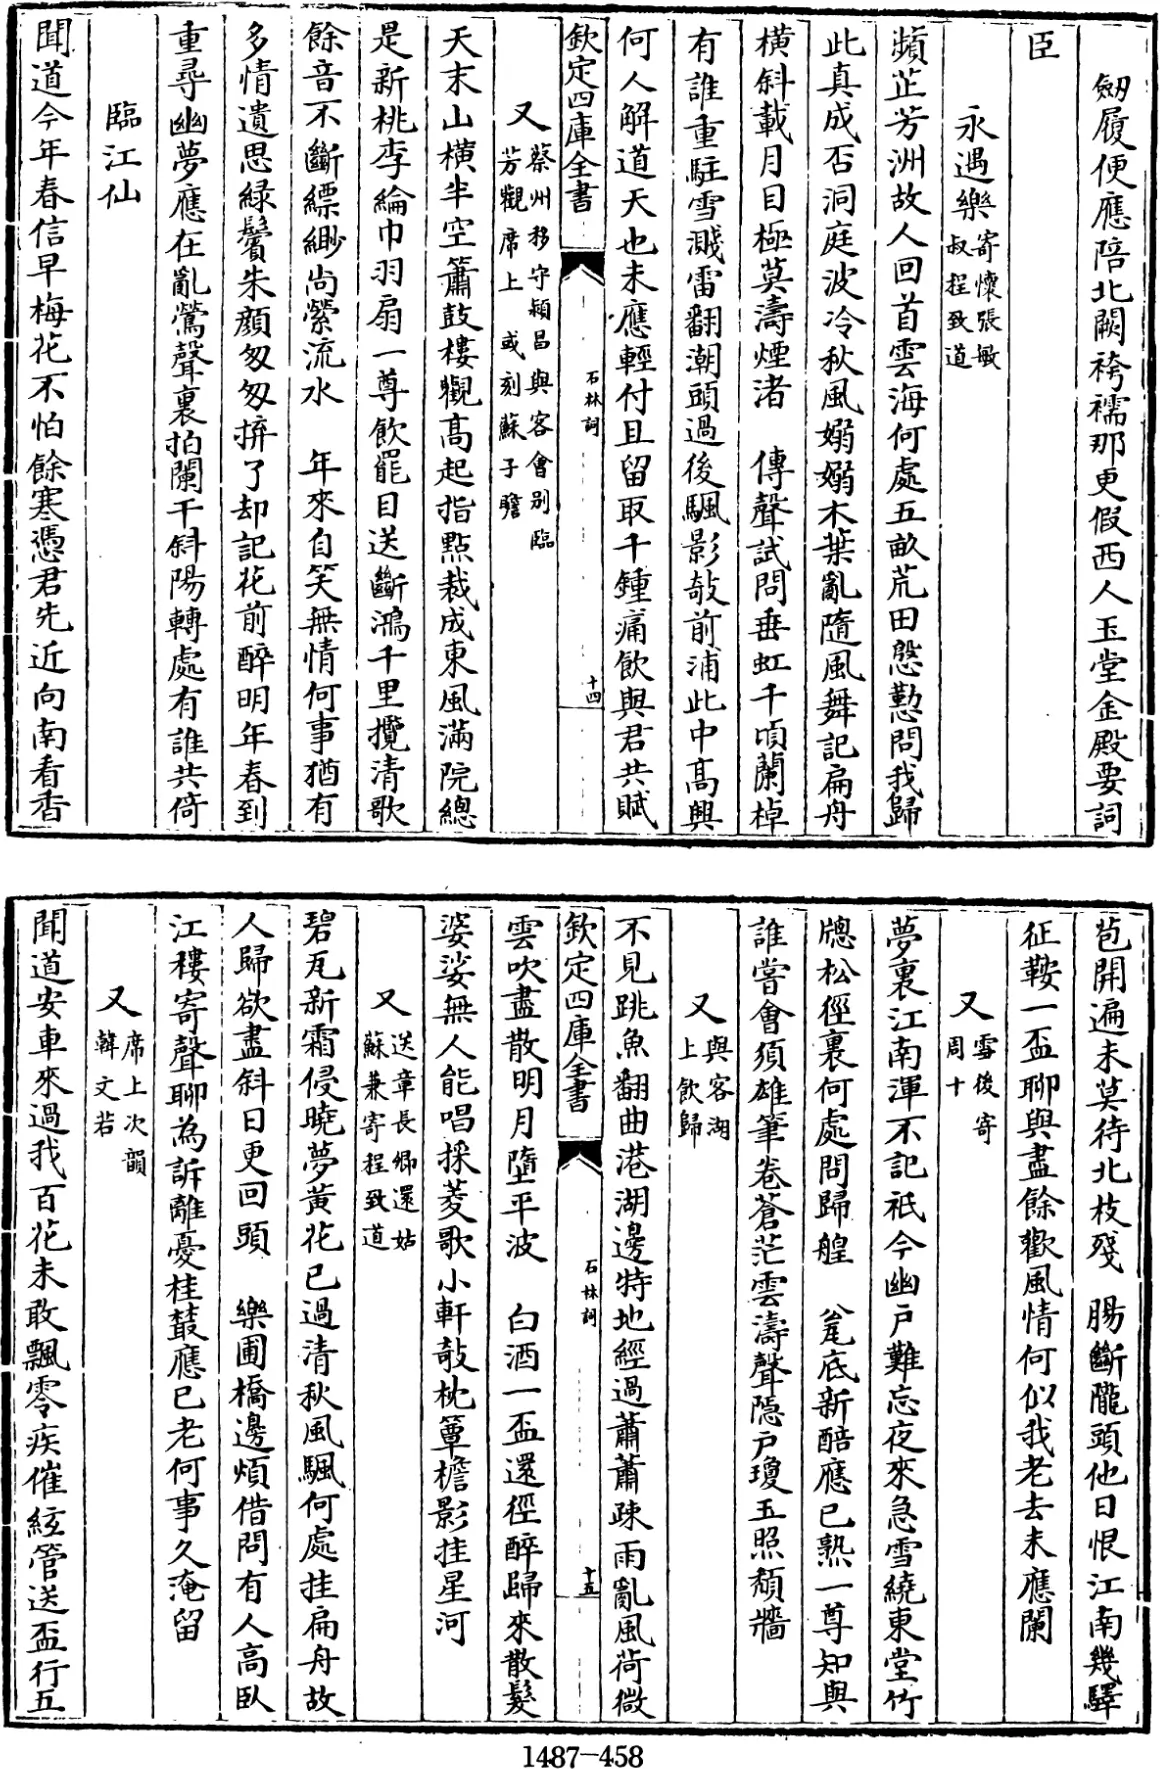 劒履便應陪北闕袴襦那更假西人玉堂金殿要詞
臣
永遇樂寄懷張敏叔程致道
蘋芷芳洲故人回首雲海何處五畝荒田慇懃問我歸
此真成否洞庭波冷秋風嫋嫋木葉亂隨風舞記扁舟
橫斜載月目極莫濤煙渚 傳聲試問垂虹千頃蘭棹
有誰重駐雪濺雷翻潮頭過後颿影敧前浦此中髙興
何人解道天也未應輕付且留取千鍾痛飲與君共賦
欽定四庫全書 石林詞 十四
又蔡州移守潁昌與客會别臨芳觀席上或刻蘇子瞻
天末山橫半空簫鼓樓觀髙起指點裁成東風滿院總
是新桃李綸巾羽扇一尊飲罷目送斷鴻千里攬清歌
餘音不斷縹緲尚縈流水 年來自笑無情何事猶有
多情遺思綠鬢朱顔匆匆拚了却記花前醉明年春到
重尋幽夢應在亂鶯聲裏拍闌干斜陽轉處有誰共倚
臨江仙
聞道今年春信早梅花不怕餘寒憑君先近向南看香
苞開遍未莫待北枝殘 腸斷隴頭他日恨江南幾驛
征鞍一盃聊與盡餘歡風情何似我老去未應闌
又雪後寄周十
夢裏江南渾不記秖今幽户難忘夜來急雪繞東堂竹
牕松徑裏何處問歸艎 瓮底新醅應已熟一尊知與
誰嘗會須雄筆卷蒼茫雲濤聲隱户瓊玉照頹牆
又與客湖上飲歸
不見跳魚翻曲港湖邊特地經過蕭蕭疎雨亂風荷微
欽定四庫全書 石林詞 十五
雲吹盡散明月墮平波 白酒一盃還徑醉歸來散髮
婆娑無人能唱採菱歌小軒敧枕簟檐影挂星河
又送章長卿還姑蘇兼寄程致道
碧瓦新霜侵曉夢黄花已過清秋風颿何處挂扁舟故
人歸欲盡斜日更回頭 樂圃橋邊煩借問有人高臥
江樓寄聲聊為訴離憂桂叢應已老何事久淹留
又席上次韻韓文若
聞道安車來過我百花未敢飄零疾催絃管送盃行五
1487-458